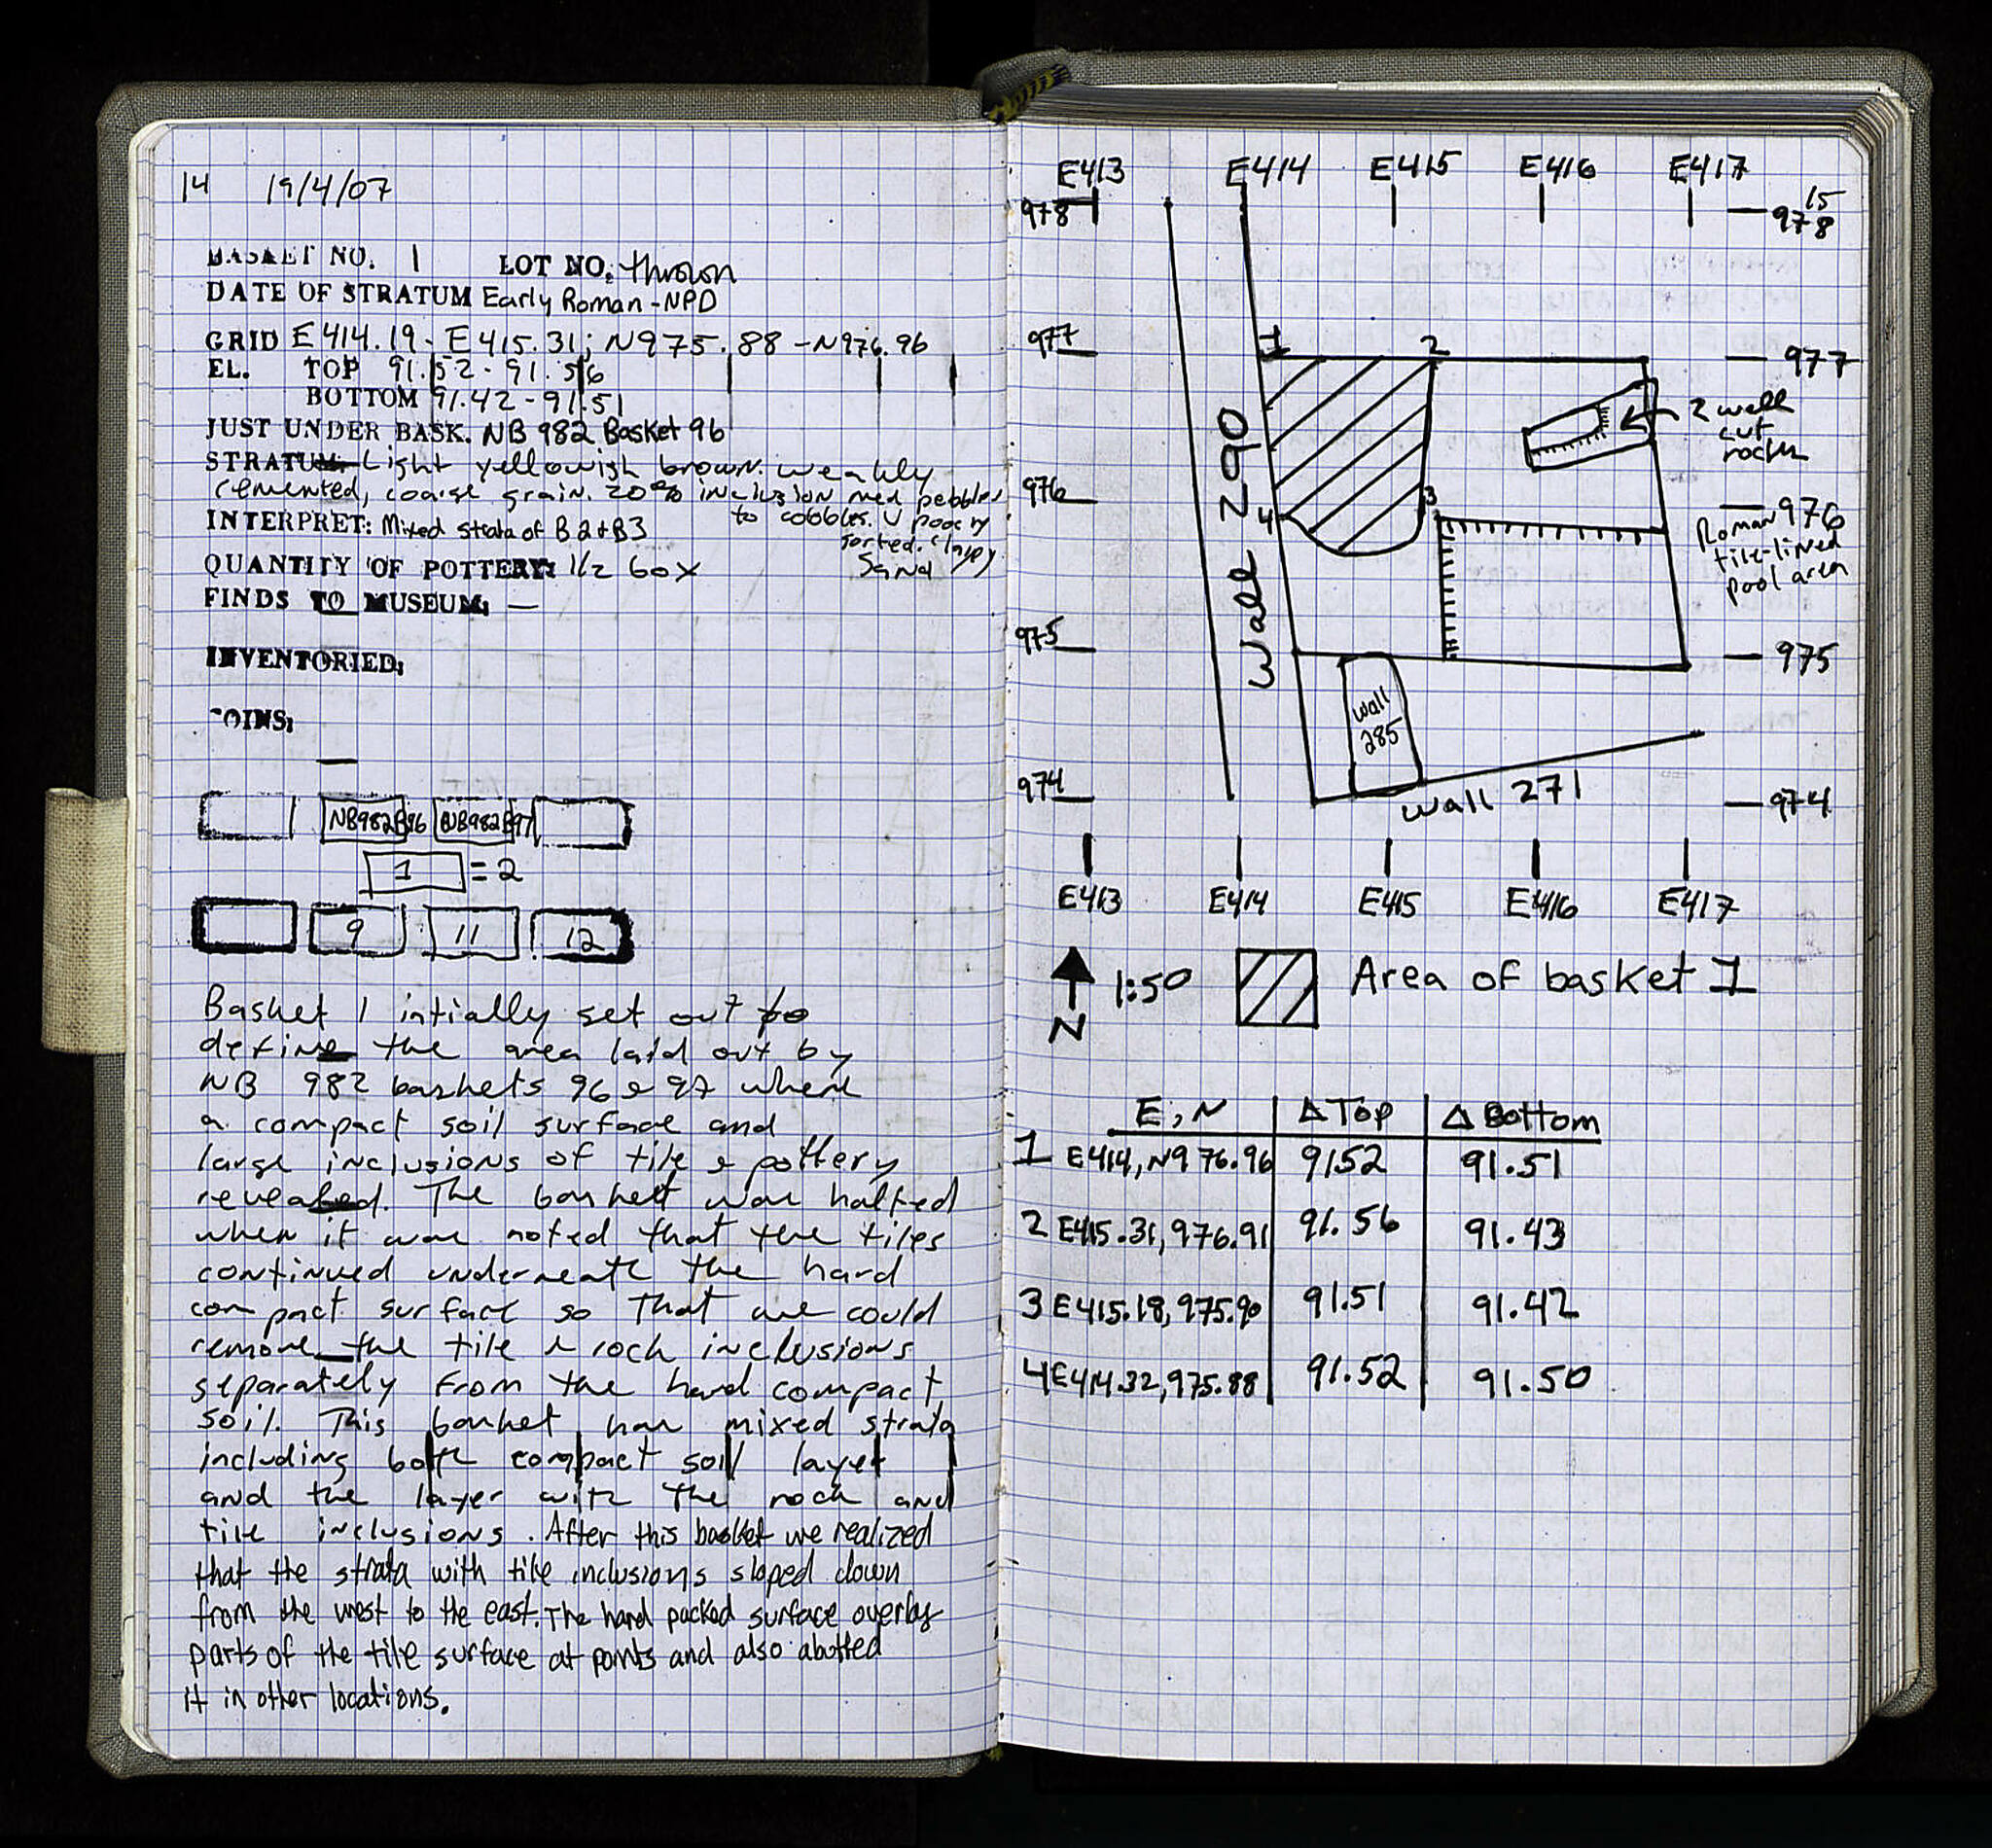 14 19/4/07
BASKET NO. 1 LOT NO. thrown
DATE OF STRATUM Early Roman-NPD
GRID E414.19 - E415.31; N975.88 - N976.96
EL. TOP 91.52 - 91.56
BOTTOM 91.42 - 91.51
JUST UNDER BASK. NB 982 Basket 96
STRATUM Light yellowish brown. weakly
cemented, coarse grain. 20% inclusion med pebbles
to cobbles. V poorly
sorted. Clayey
Sand
INTERPRET: Mixed strata of B2+B3
QUANTITY OF POTTERY: 1/2 box
FINDS TO MUSEUM: —
INVENTORIED:
COINS:
—
NB982B96 NB982B97
1 = 2
9 11 12
Basket 1 intially set out to
define the area laid out by
NB 982 baskets 96 & 97 where
a compact soil surface and
large inclusions of tile & pottery
revealed. The basket was halted
when it was noted that the tiles
continued underneath the hard
compact surface so that we could
remove the tile & rock inclusions
separately from the hard compact
soil. This basket has mixed strata
including both compact soil layer
and the layer with the rock and
tile inclusions. After this basket we realized
that the strata with tile inclusions sloped down
from the west to the east. The hard packed surface overlay
parts of the tile surface at points and also abutted
it in other locations.
E413 E414 E415 E416 E417
15
978 978
977 1 2 977
2 well
cut
rocks
Wall 290
976 3 976
4
Roman
tile-lined
pool area
975 975
wall
285
974 wall 271 974
E413 E414 E415 E416 E417
N 1:50 Area of basket 1
E, N Δ Top Δ Bottom
1 E414, N976.96 91.52 91.51
2 E415.31, 976.91 91.56 91.43
3 E415.18, 975.90 91.51 91.42
4 E414.32, 975.88 91.52 91.50